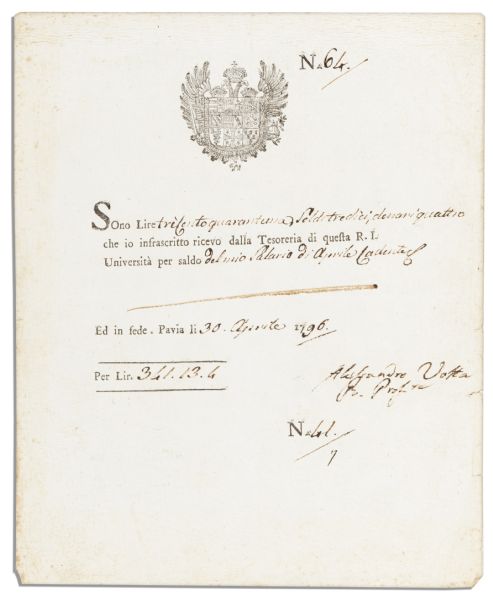 N. 64.
Sono Lire trecento quarantuna, Soldi tredici, denari quattro
che io infrascritto ricevo dalla Tesoreria di questa R. I.
Università per saldo del mio Salario di Aprile cadente
Ed in fede. Pavia li 30. Aprile 1796.
Per Lir. 341. 13. 4
Alessandro Volta
N. 41.